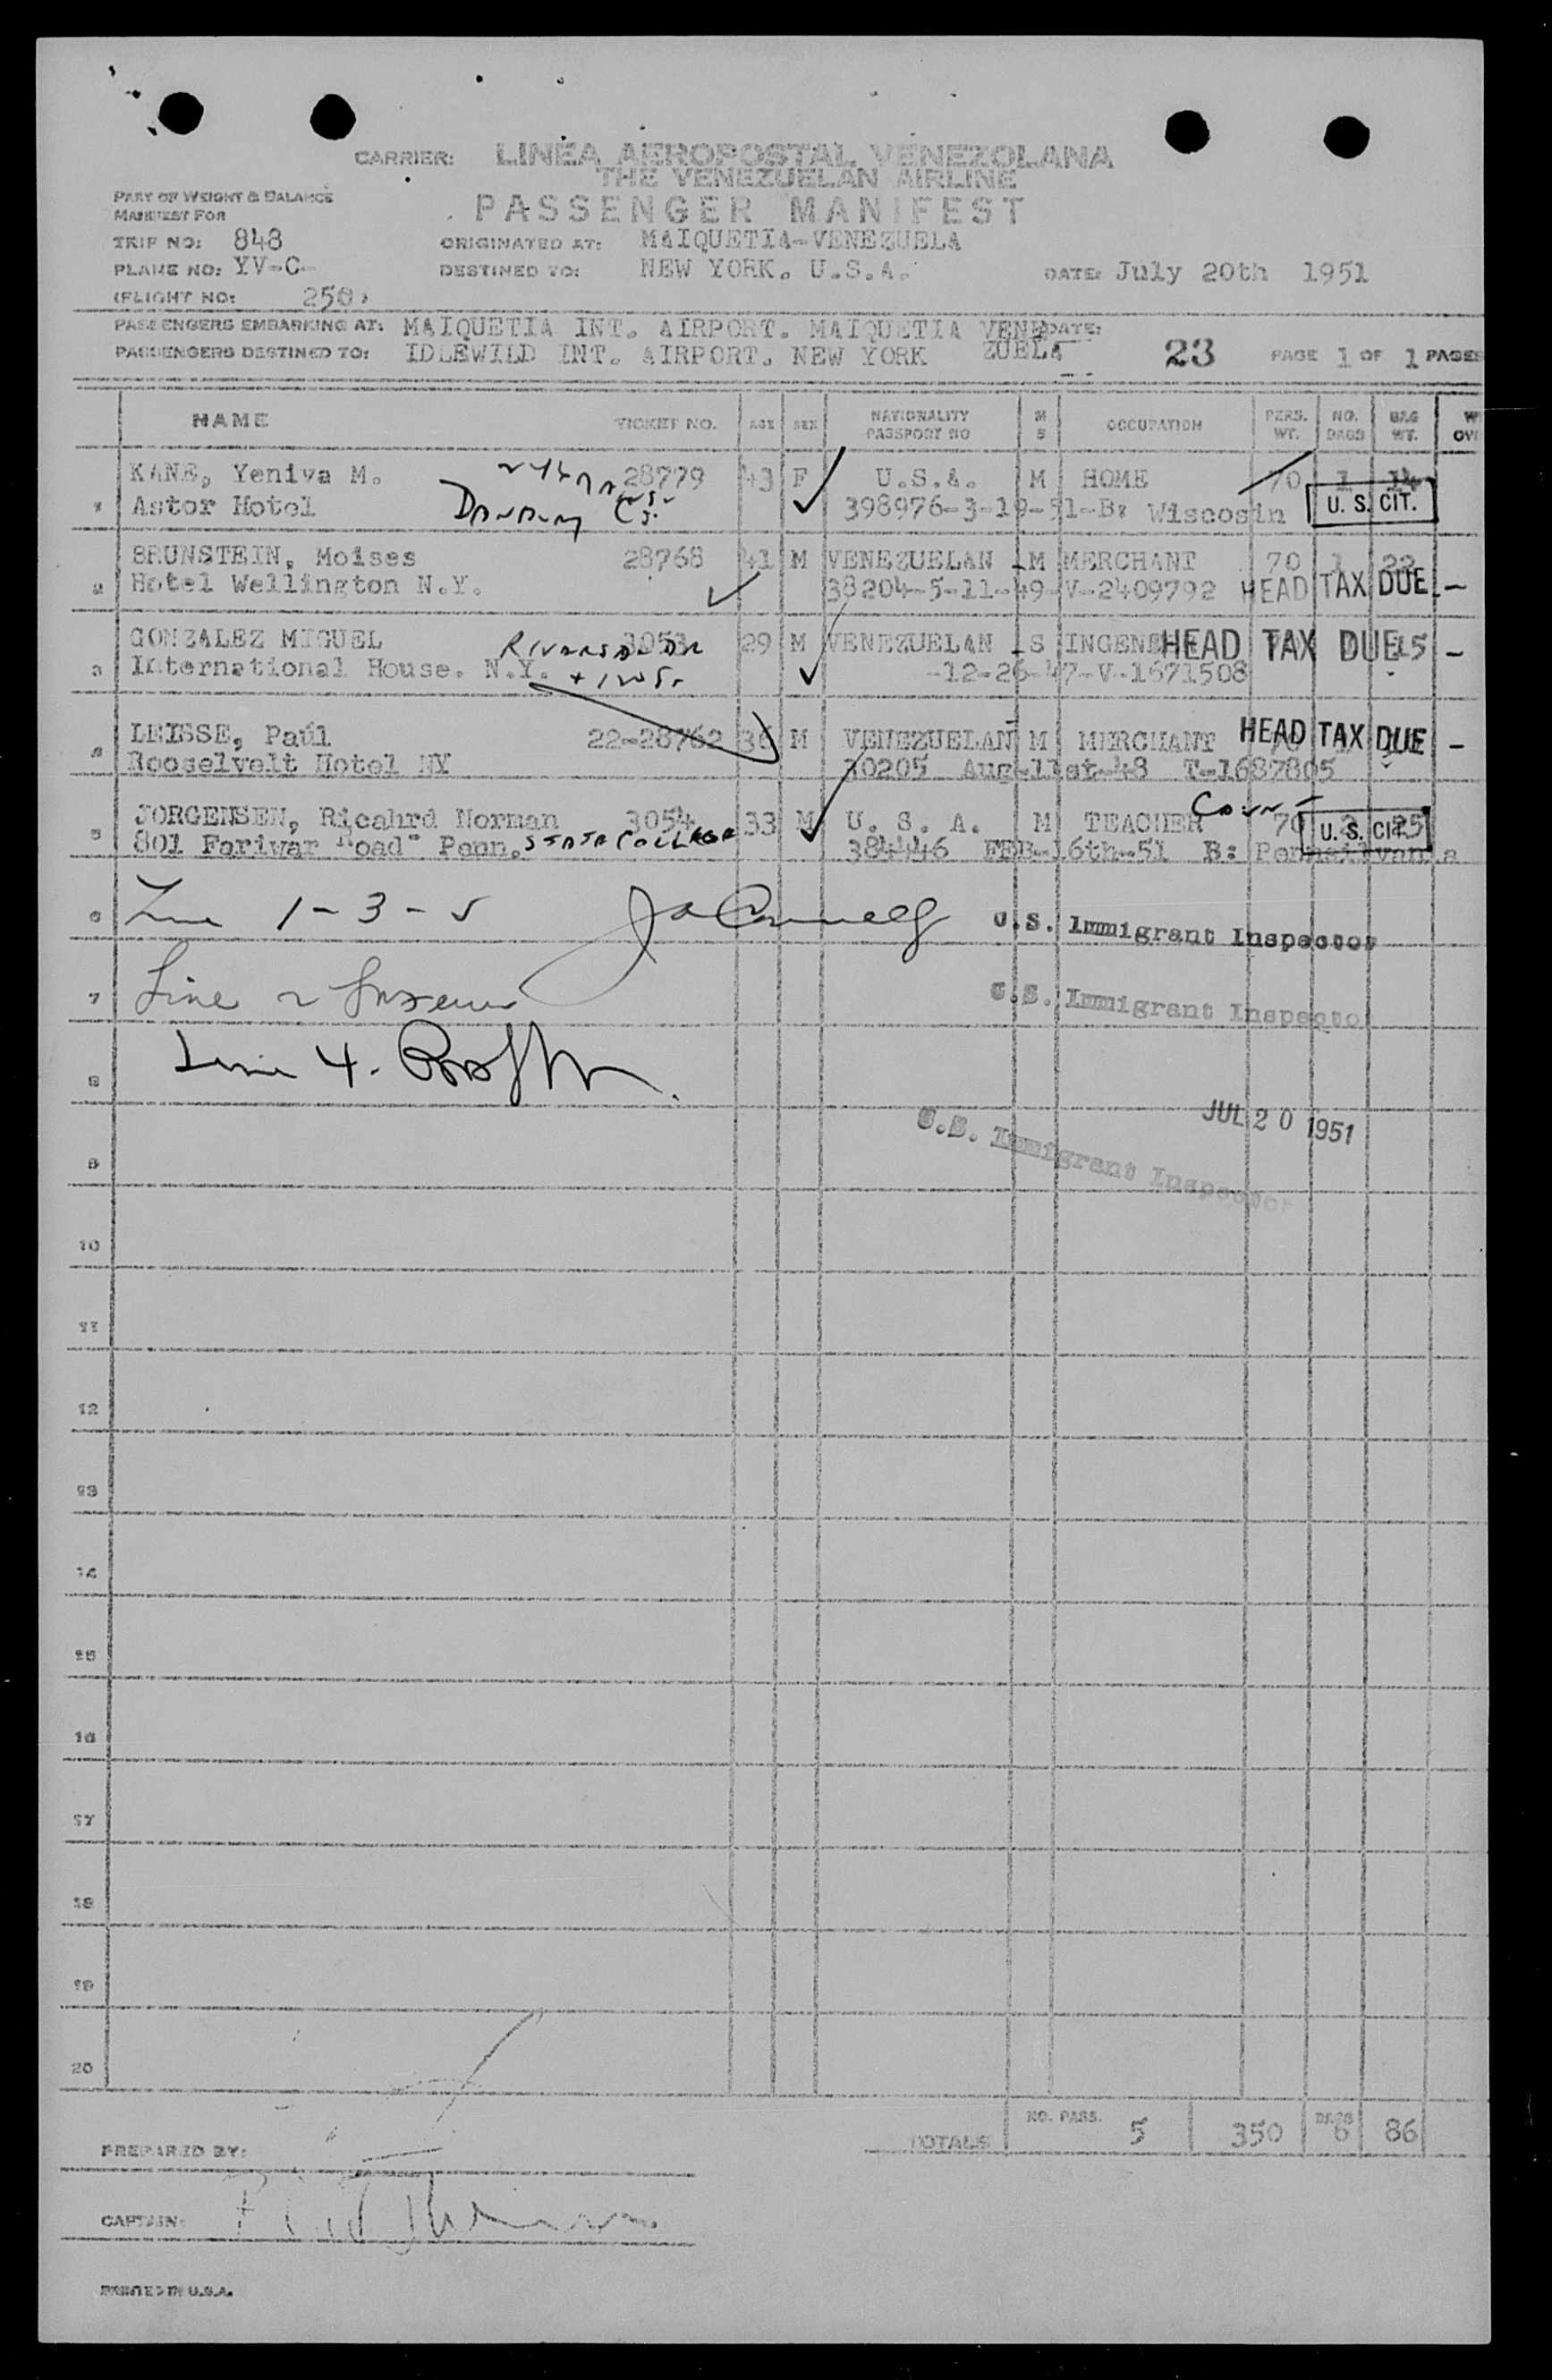 CARRIER: LINEA AEROPOSTAL VENEZOLANA
THE VENEZUELAN AIRLINE
PASSENGER MANIFEST
PART OF WEIGHT & BALANCE
MANIFEST FOR
TRIP NO: 848
ORIGINATED AT: MAIQUETIA-VENEZUELA
PLANE NO: YV-C-
DESTINED TO: NEW YORK. U.S.A.
DATE: July 20th 1951
(FLIGHT NO: 250)
PASSENGERS EMBARKING AT: MAIQUETIA INT. AIRPORT. MAIQUETIA VENE DATE:
PASSENGERS DESTINED TO: IDLEWILD INT. AIRPORT. NEW YORK ZUELA 23 PAGE 1 OF 1 PAGES
NAME TICKET NO. AGE SEX NATIONALITY PASSPORT NO M S OCCUPATION PERS. WT. NO. BAGS BAG WT.
1 KANE, Yeniva M. 28779 43 F U.S.A. M HOME 70 1 14
Astor Hotel 398976-3-19-51-B: Wiscosin U.S. CIT.
2 BRUNSTEIN, Moises 28768 41 M VENEZUELAN M MERCHANT 70 1 22
Hotel Wellington N.Y. 38204-5-11-49-V-2409792 HEAD TAX DUE -
3 GONZALEZ MIGUEL 3053 29 M VENEZUELAN S INGENE HEAD TAX DUE 15 -
International House. N.Y. -12-26-47-V-1671508
4 LEISSE, Paúl 22-28762 36 M VENEZUELAN M MERCHANT HEAD TAX DUE -
Rooselvelt Hotel NY 30205 Aug-11st-48 T-1687805
5 JORGENSEN, Ricahrd Norman 3054 33 M U. S. A. M TEACHER 70 2 25
801 Fariwar Road" Penn. STATE COLLEGE 38446 FEB-16th-51 B: Pennsilvania U.S. CIT.
6 Line 1-3-5 U.S. Immigrant Inspector
7 Line 2 U.S. Immigrant Inspector
8 Line 4.
JUL 20 1951
U.S. Immigrant Inspector
9
10
11
12
13
14
15
16
17
18
19
20
TOTALS NO. PASS. 5 350 BAGS 6 86
PREPARED BY:
CAPTAIN:
PRINTED IN U.S.A.